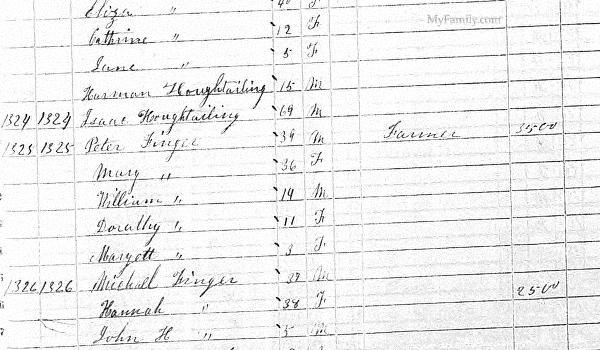 MyFamily.com
Eliza " 40 F
Cathrine " 12 F
Jane " 5 F
Harman Houghtailing 15 M
1324 1324 Isaac Houghtailing 69 M
1325 1325 Peter Finger 39 M Farmer 3500
Mary " 36 F
William " 14 M
Dorathy " 11 F
Margett " 3 F
1326 1326 Michael Finger 37 M 2500
Hannah " 38 F
John H " 5 M